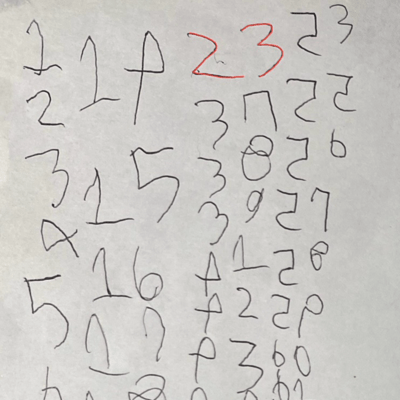 1
2
3
4
5
14
15
16
17
23
37
38
39
41
42
43
23
22
26
27
28
29
60
61